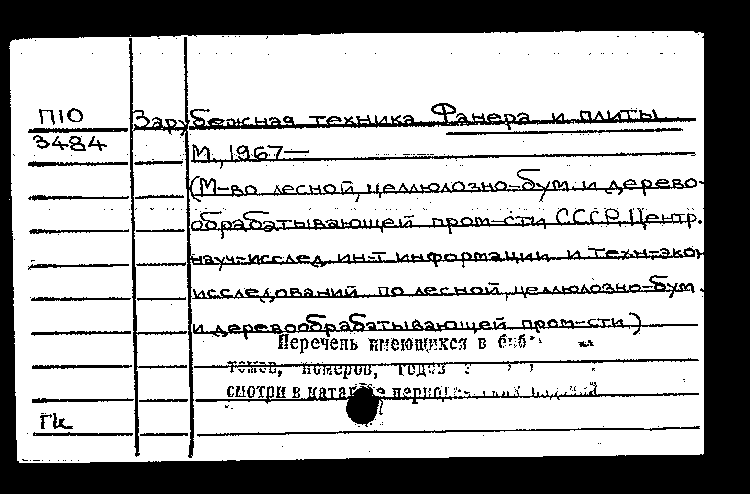 П10 Зарубежная техника Фанера и плиты
3484
М., 1967—
(М-во лесной, целлюлозно-бум. и дерево-
обрабатывающей пром-сти СССР, Центр.
науч-исслед. ин-т информации и техн-экон
исследований по лесной, целлюлозно-бум.
и деревообрабатывающей пром-сти)
Перечень имеющихся в
томов, номеров, годов
смотри в
Гк